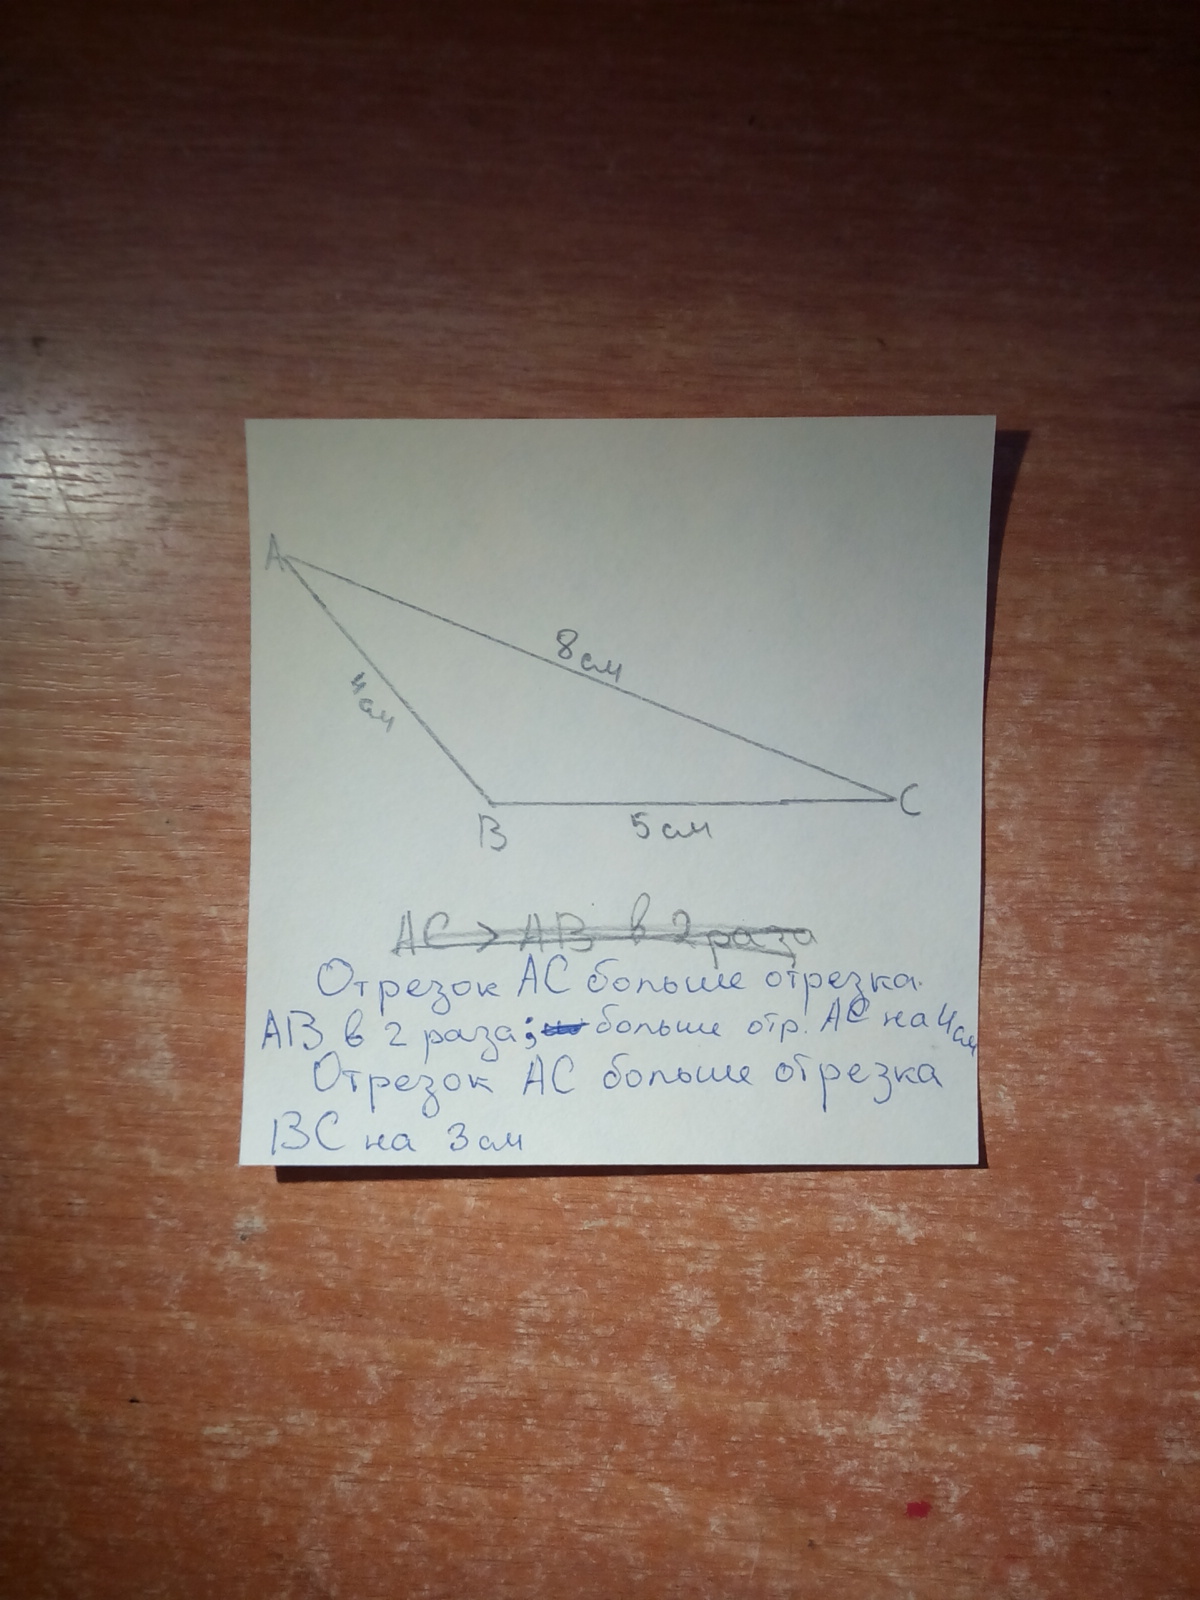 A
8см
4см
B
5см
C
AC > AB в 2 раза
Отрезок AC больше отрезка
AB в 2 раза; больше отр. AC на 4см
Отрезок AC больше отрезка
BC на 3см